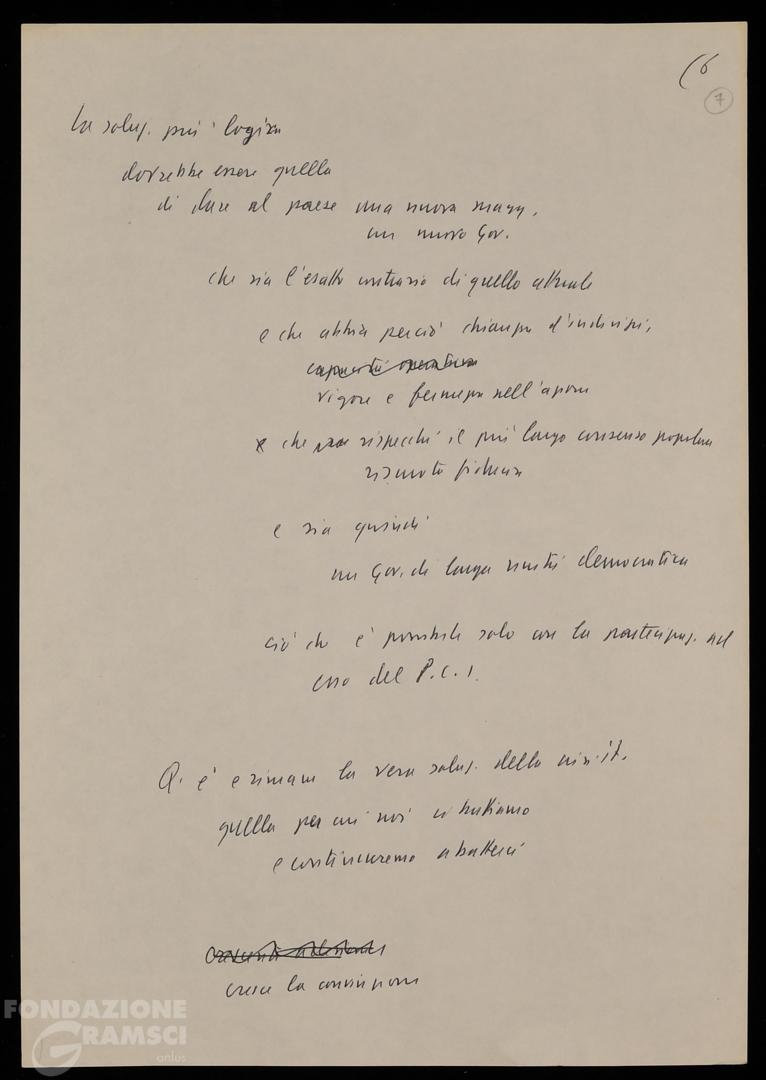 (6
7
La soluz. più logica
dovrebbe essere quella
di dare al paese una nuova magg.
un nuovo Gov.
che sia l'esatto contrario di quello attuale
e che abbia perciò chiarezza d'indirizzi,
capacità operativa
vigore e fermezza nell'azione
e che rispecchi il più largo consenso popolare
riscuota fiducia
e sia quindi
un Gov. di larga unità democratica
ciò che è possibile solo con la partecipaz. ad
esso del P.C.I.
Q. è e rimane la vera soluz. della crisi it.
quella per cui noi ci battiamo
e continueremo a batterci
cresce la convinzione
FONDAZIONE
GRAMSCI
onlus